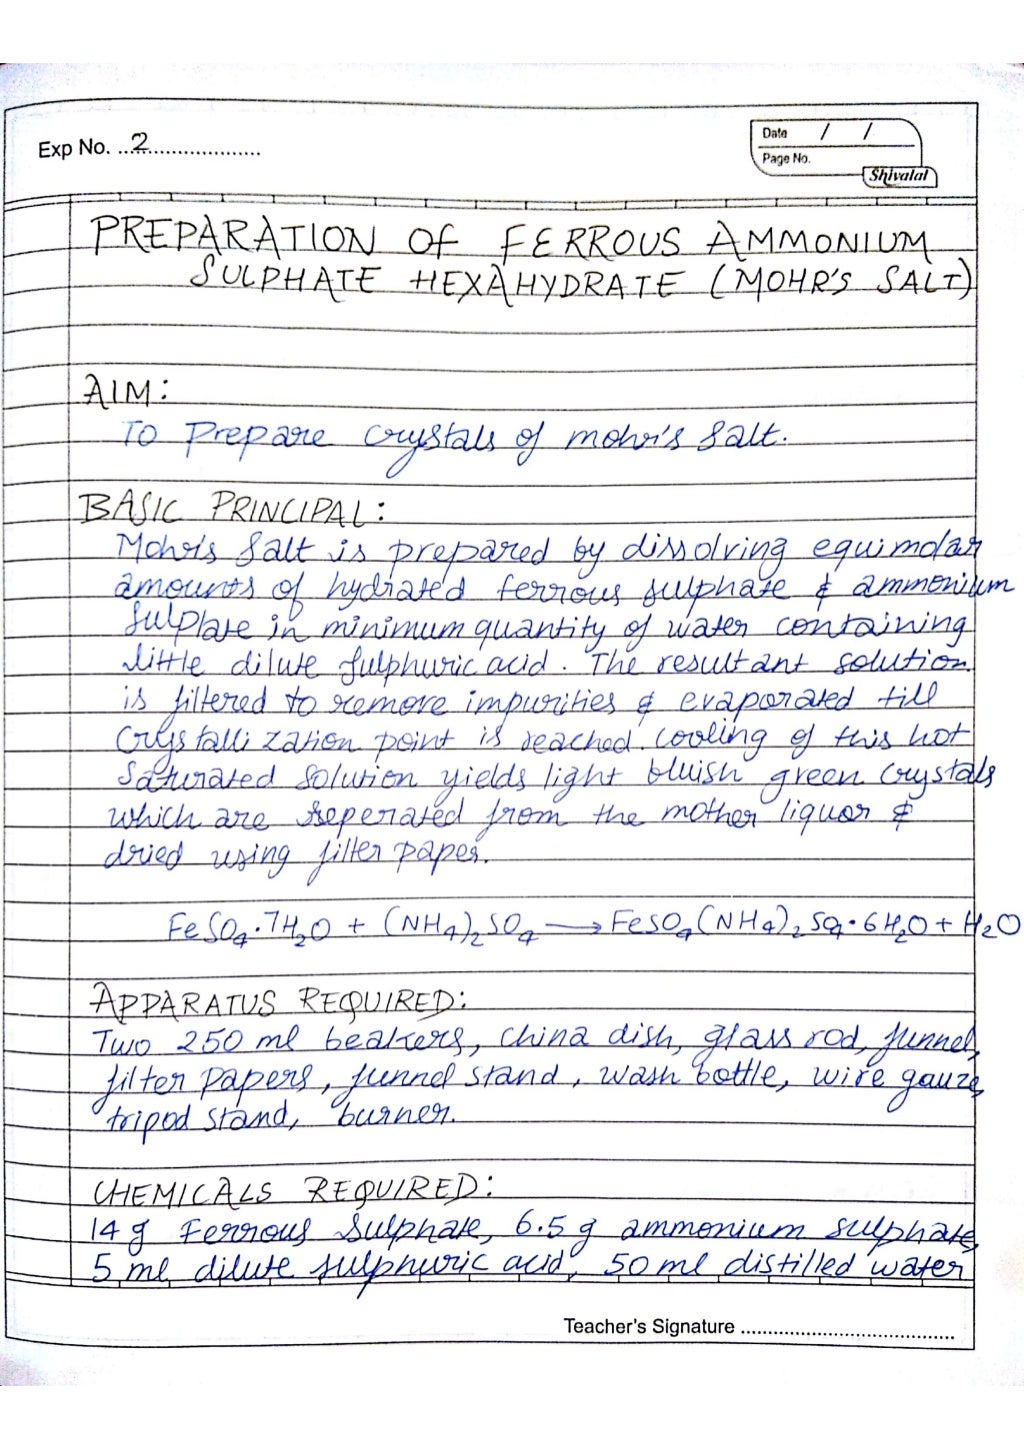 Exp No. ..2...................
Date / /
Page No.
Shivalal
PREPARATION OF FERROUS AMMONIUM
SULPHATE HEXAHYDRATE (MOHR'S SALT)
AIM:
To Prepare crystals of mohr's salt.
BASIC PRINCIPAL:
Mohr's salt is prepared by dissolving equimolar
amounts of hydrated ferrous sulphate & ammonium
sulplate in minimum quantity of water containing
little dilute sulphuric acid. The resultant solution
is filtered to remove impurities & evaporated till
Crystallization point is reached. Cooling of this hot
Saturated solution yields light bluish green crystals
which are seperated from the mother liquor &
dried using filter paper.
FeSO₄·7H₂O + (NH₄)₂SO₄ ⟶ FeSO₄(NH₄)₂SO₄·6H₂O + H₂O
APPARATUS REQUIRED:
Two 250 ml beakers, China dish, glass rod, funnel,
filter papers, funnel stand, wash bottle, wire gauze,
tripod stand, burner.
CHEMICALS REQUIRED:
14 g Ferrous Sulphate, 6.5 g ammonium sulphate,
5 ml dilute sulphuric acid, 50 ml distilled water
Teacher's Signature ......................................